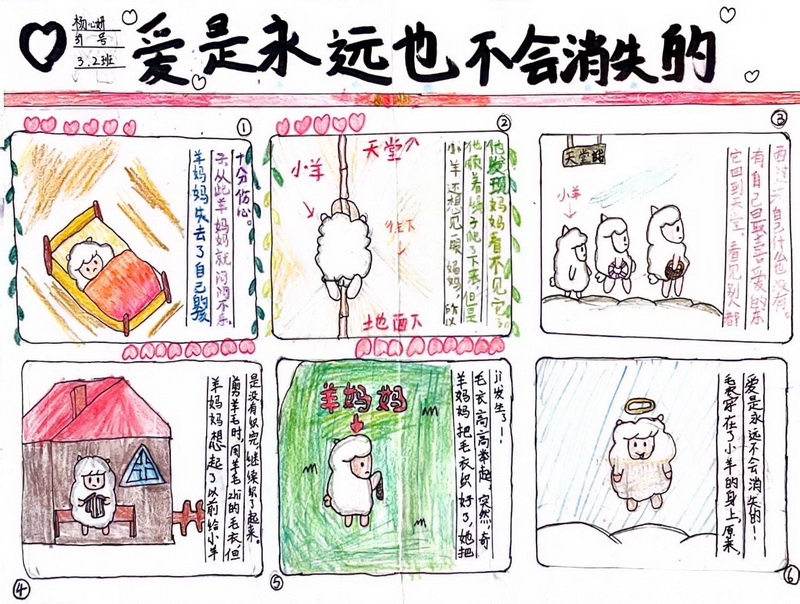 杨心妍
号
3.2班
爱是永远也不会消失的
①
羊妈妈失去了自己的孩
子,从此羊妈妈就闷闷不乐
十分伤心。
②
小羊
天堂
往下
地面
小羊还想见一眼妈妈,所以
他顺着绳子爬了下来,但是
他发现妈妈看不见它了
③
天堂
小羊
它回到天堂,看见别人都
有自己最喜爱的东
西,而自己什么也没有。
④
羊妈妈想起了以前给小羊
剪羊毛时,用羊毛zhi的毛衣,但
是没有织完,继续织了起来。
⑤
羊妈妈
羊妈妈把毛衣织好了,她把
毛衣高高举起,突然,奇
ji发生了!
⑥
毛衣穿在了小羊的身上,原来
爱是永远不会消失的!